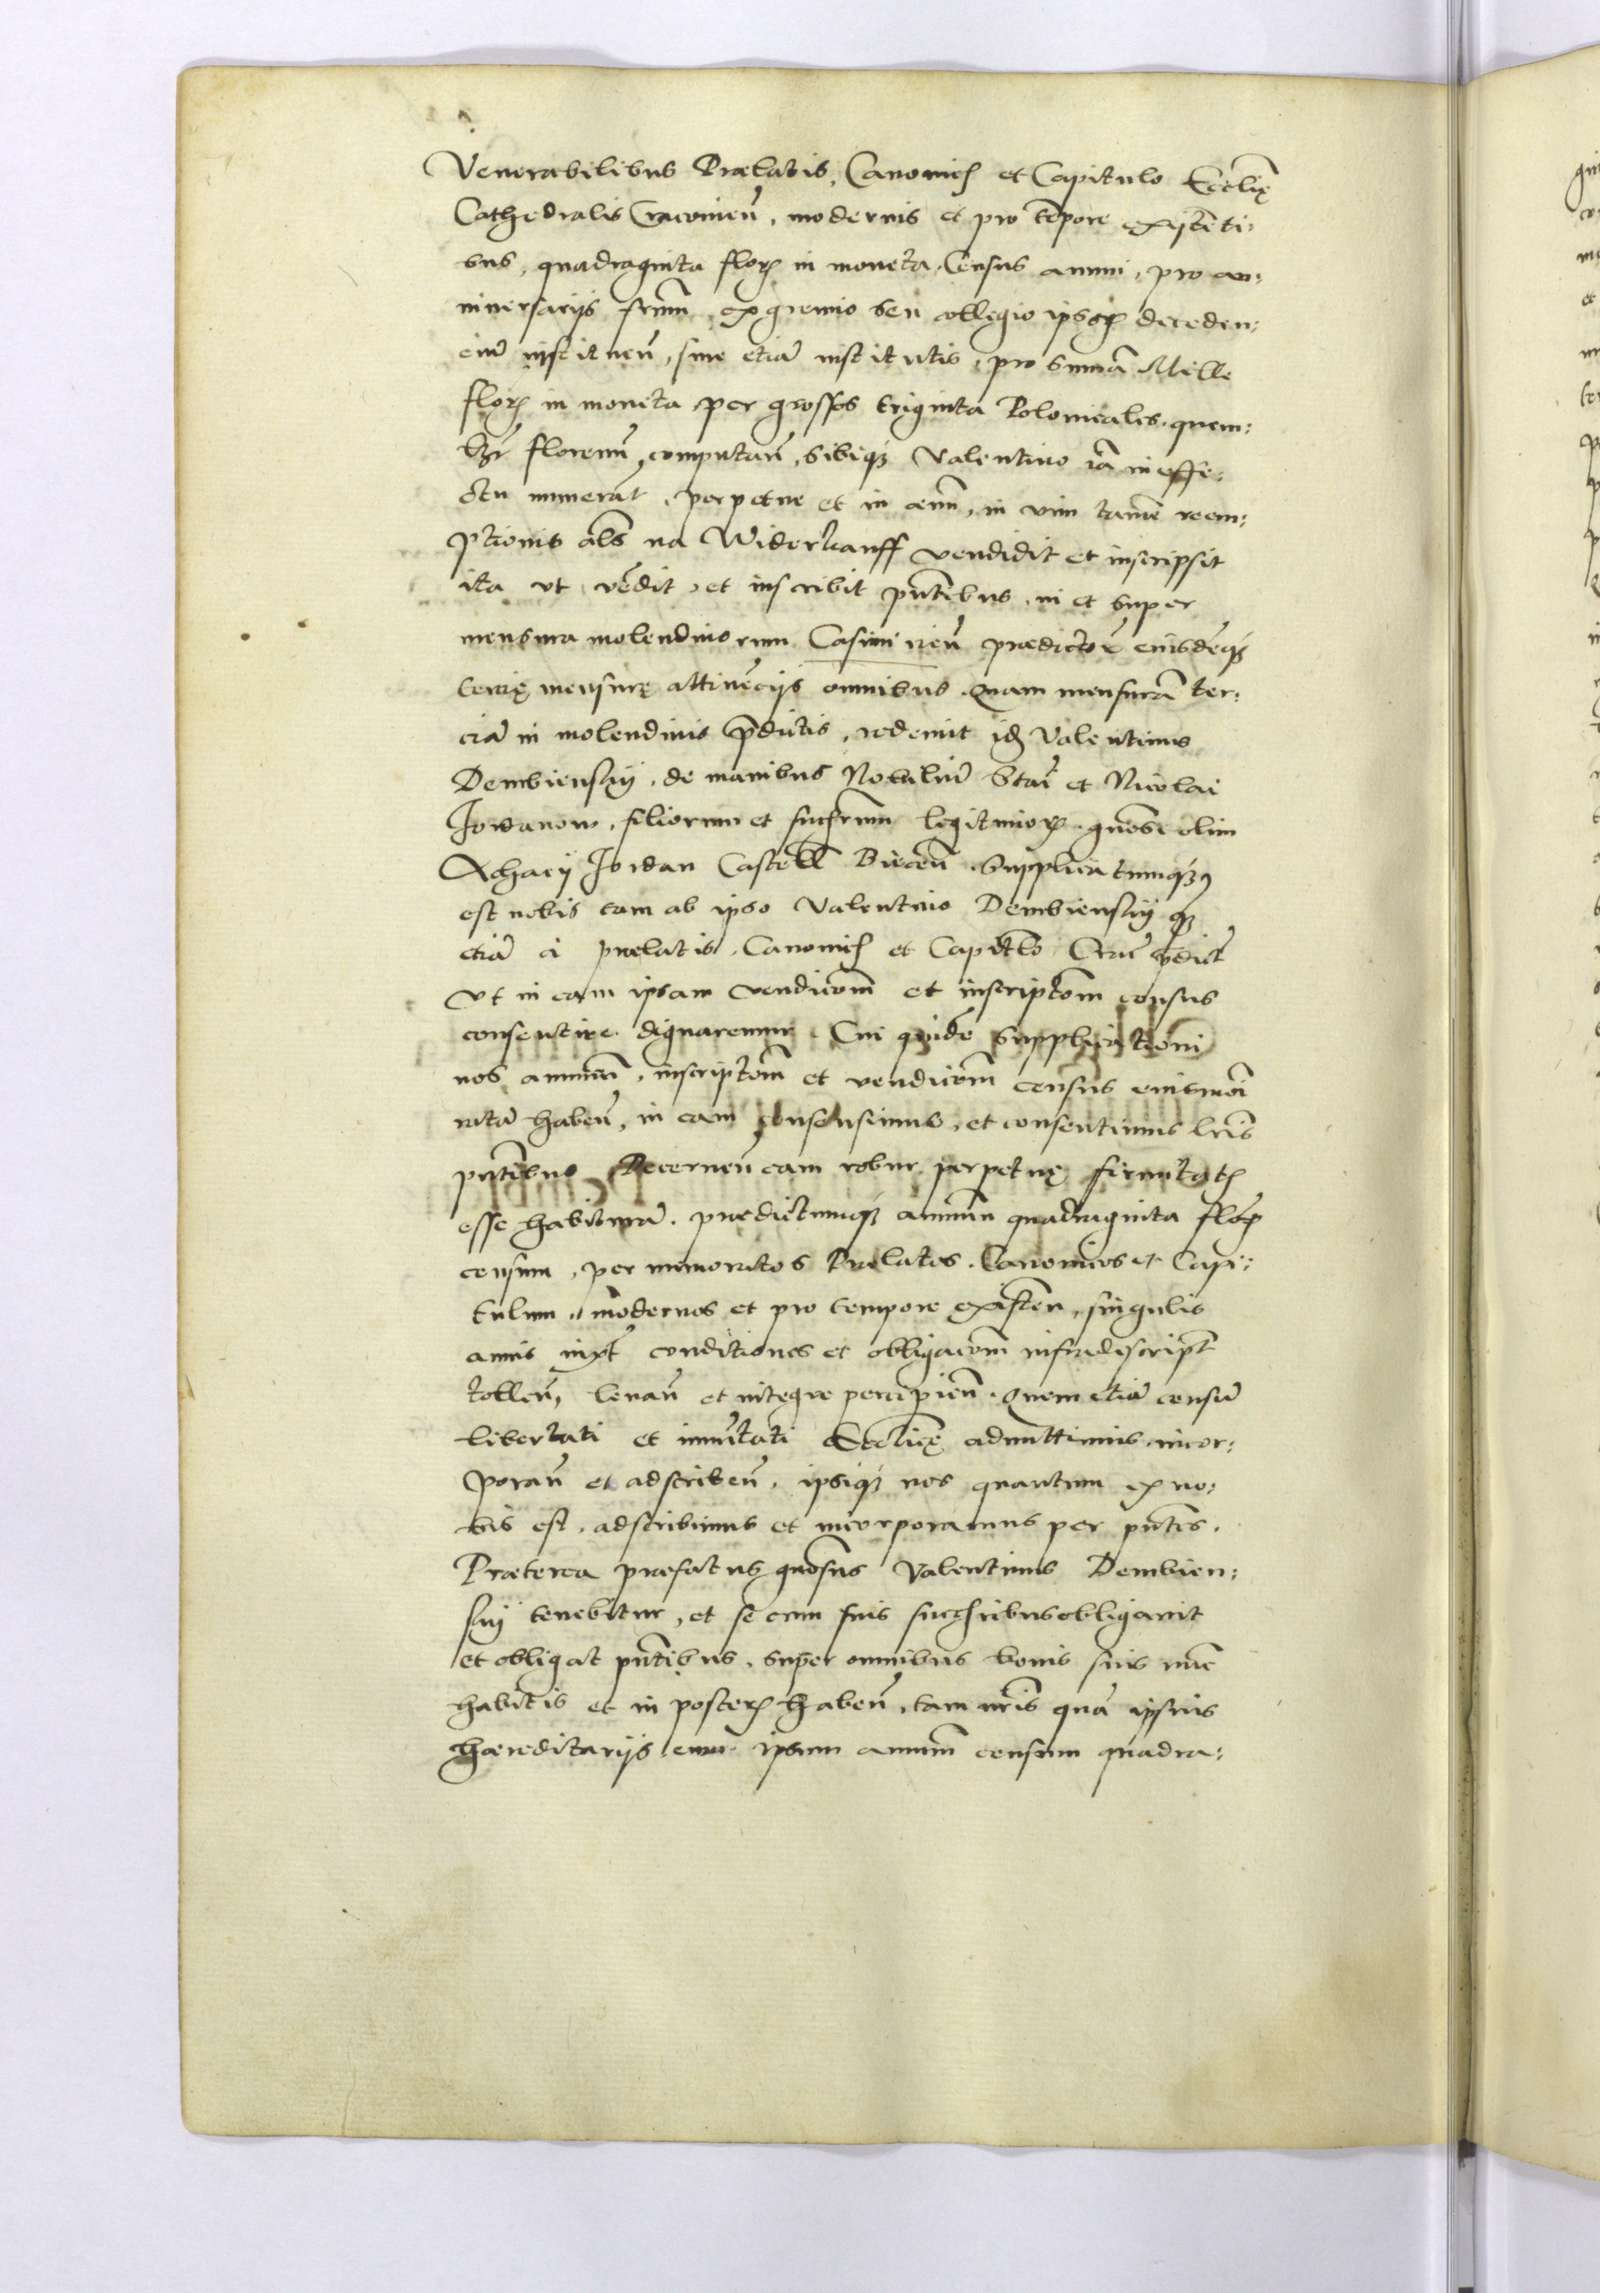 Venerabilibus Prælatis, Canonicis et Capitulo Ecclīę
Cathedralis Cracovien̄, modernis et pro tēpore existēti:
bus, quadraginta floꝝ in moneta, Census annui, pro an:
niversarijs frūm ex gremio seu collegio ipsoꝝ deceden:
ciū instituen̄, sive etiā institutis, pro summā Mille
floꝝ in moneta, per grossos triginta Polonicales, quem:
lꝫt florenū computan̄, sibiqꝫ Valentino iā in effe:
ctu numerat̄, perpetue et in ævū, in vim tamē reem:
ptionis al̄s na Widerkauff vendidit et inscripsit
ita ut vēdit et inscribit pn̄tibus, in et super
mensura molendinorum Casimirien̄ prædictoꝝ eiusdēqꝫ
terię mensurę attinēcijs omnibus. Quam mensurā ter:
ciā in molendinis p̄dictis, redemit idē Valentinus
Dembiensky, de manibus Nobiliū Stāi et Nicolai
Jordanow, filiorum et succ̄rum legitimoꝝ, gn̄osi olim
Achacij Jordan Castell̄ Biecen̄. Supplicatumqꝫ
est nobis tam ab ipso Valentino Dembiensky qꝫ
etiā à prælatis, Canonicis et Capitlō Crac̄ p̄dict̄
ut in eam ipsam vendicōm et inscriptōm census
consentire dignaremur. Cui quidē supplicationi
nos annuēn̄, inscriptōm et vendicōm census eiusmōi
ratā haben̄, in eam consensimus, et consentimus lr̄is
pn̄tibus. Decernen̄ eam robur perpetuę firmitatis
esse habiturā. prædictumqꝫ annuum quadraginta floꝝ
censum, per memoratos Prælatos, Canonicos et Capi:
tulum, modernos et pro tempore existen̄, singulis
annis iuxt̄ conditiones et obligacōm infradescript̄
tollen̄, levan̄ et integre percipien̄. Quem etiā censū
libertati et immūitati Ecclīcę admittimus, incor:
poran̄ et adscriben̄, ipsiqꝫ nos quantum ex no:
bis est, adscribimus et incorporamus per pn̄tes.
Præterea præfatus gn̄osus Valentinus Dembien:
sky tenebitur, et se cum suis succ̄ribus obligavit
et obligat pn̄tibus, super omnibus bonis suis nūc
habitis et in posteꝝ haben̄, tam nr̄is quā ipsius
hæreditarijs, eum ipsum annuum censum quadra: